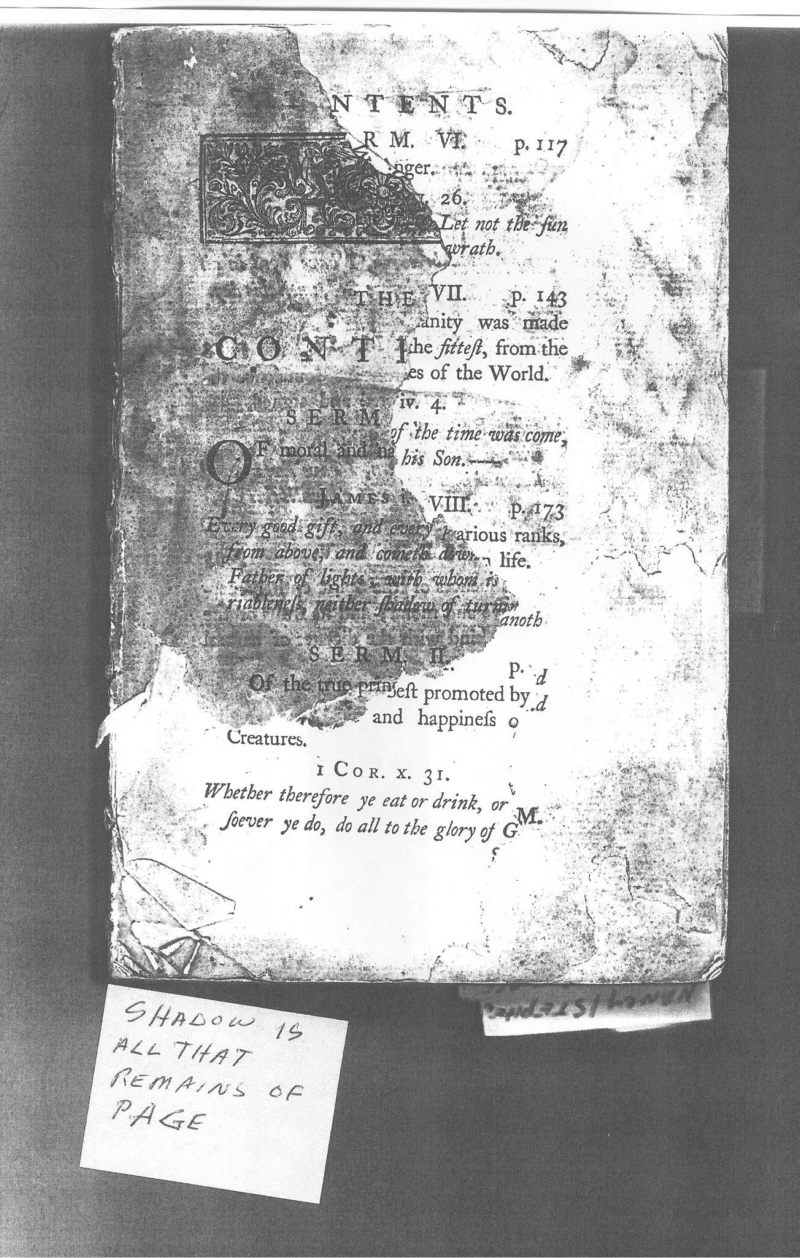 NTENTS.
RM. VI. p. 117
nger.
26.
Let not the ſun
wrath.
THE VII. p. 143
anity was made
CONT the fitteſt, from the
es of the World.
iv. 4.
SERM
of the time was come,
OF moral and na his Son.—
JAMES VIII. p. 173
Every good gift, and every arious ranks,
from above, and cometh down life.
Father of lights; with whom is
riableneſs, neither ſhadow of turnin
anoth
SERM. II. p. d
Of the true prin eſt promoted by d
and happineſs o
Creatures.
1 COR. x. 31.
Whether therefore ye eat or drink, or M.
ſoever ye do, do all to the glory of G
SHADOW IS
ALL THAT
REMAINS OF
PAGE